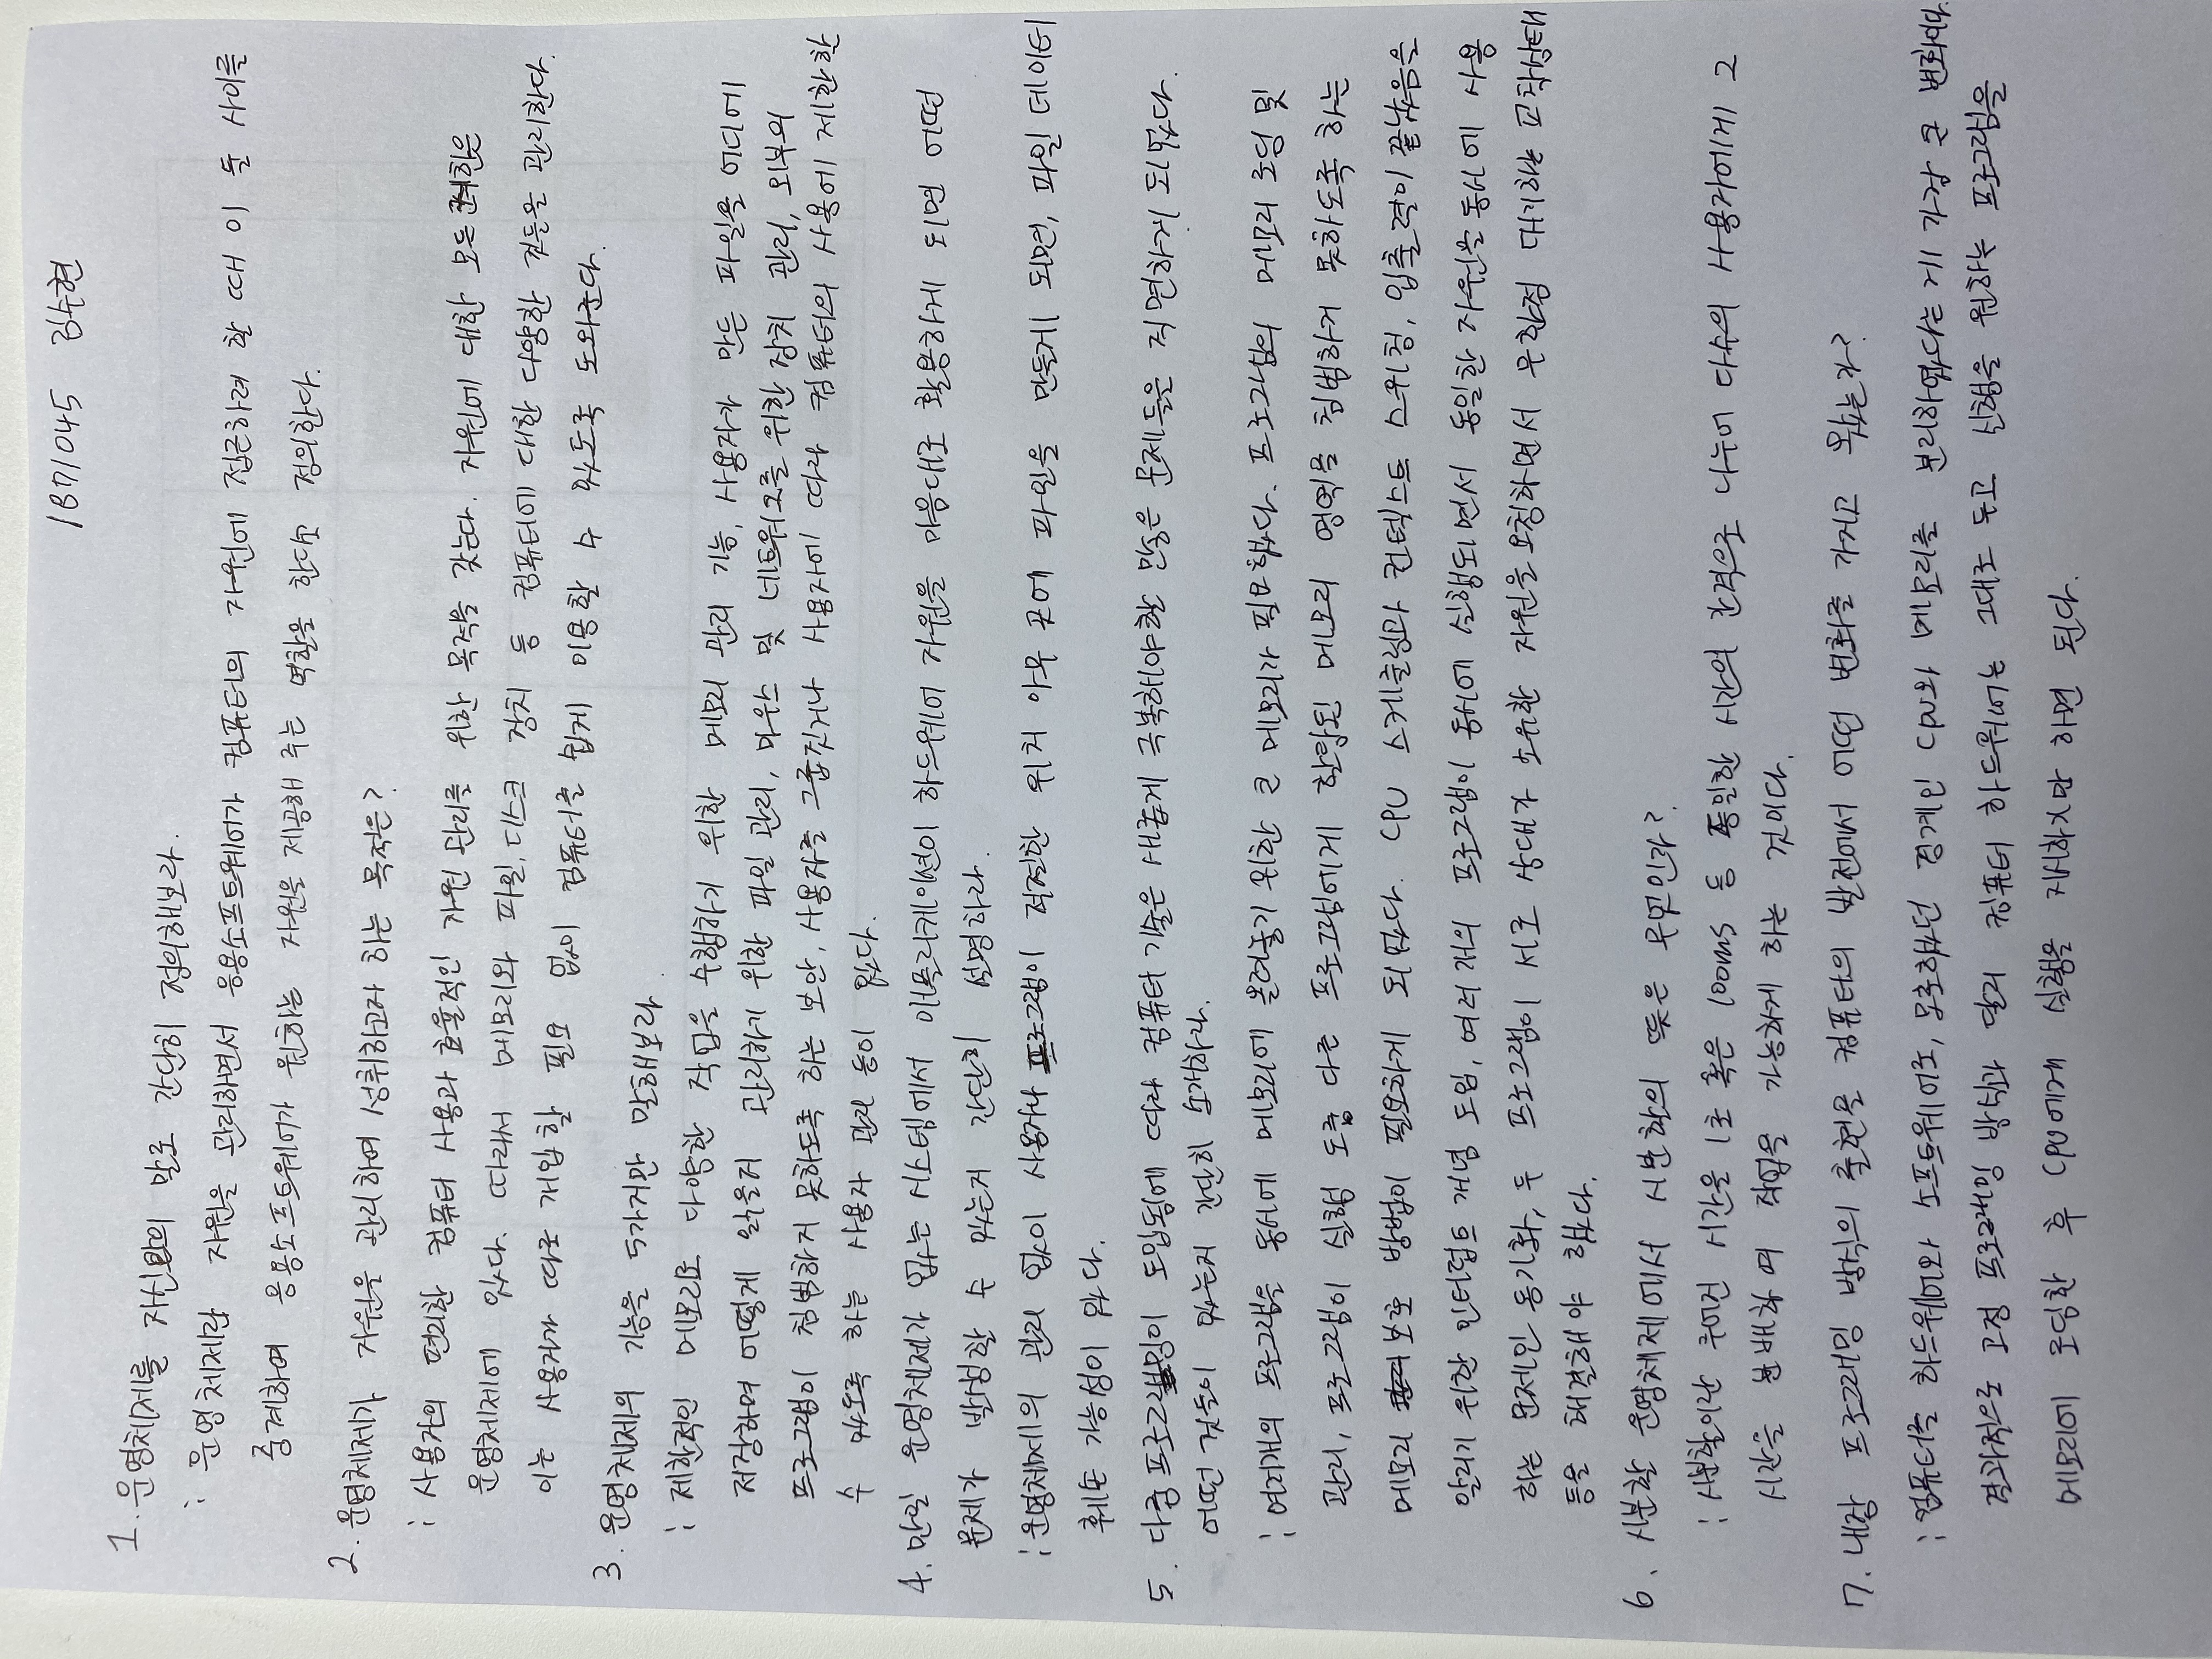 1871045 김수현
1. 운영체제를 자신만의 말로 간단히 정의해보라.
: 운영체제란 자원을 관리하면서 응용소프트웨어가 컴퓨터의 자원에 접근하려 할 때 이 둘 사이를
중계하여 응용소프트웨어가 원하는 자원을 제공해 주는 역할을 한다고 정의한다.
2. 운영체제가 자원을 관리하여 성취하고자 하는 목적은?
: 사용자의 편리한 컴퓨터 사용과 효율적인 자원 관리를 위한 목적을 갖는다. 자원에 대한 모든 권한은
운영체제에 있다. 따라서 메모리와 파일, 디스크 장치 등 컴퓨터에 대한 다양한 것들을 관리한다.
이는 사용자가 따로 개입할 필요 없이 컴퓨터를 쉽게 이용할 수 있도록 도와준다.
3. 운영체제의 기능을 5가지만 말해보라.
: 제한적인 메모리로 다양한 작업을 수행하기 위한 메모리 관리 기능, 사용자가 만든 파일을 어디에
저장하며 어떻게 읽을지 관리하기 위한 파일 관리, 마우스 및 네트워크를 위한 장치 관리, 외부의
프로그램이 침범하지 못하도록 하는 보안, 사용자를 그룹짓거나 사용자에 따라 컴퓨터의 사용에 제한할
수 있도록 하는 사용자 관리 등이 있다.
4. 만일 운영체제가 없는 시스템에서 어플리케이션이 하드웨어 자원을 마음대로 활용하게 되면 어떤
문제가 발생할 수 있는지 간단히 설명하라.
: 운영체제의 관리 없이 사용자나 프로그램이 적절한 위치 아무 곳에 파일을 만들게 되면, 파일 데이터
훼손 가능성이 있다.
5. 다중프로그래밍이 도입됨에 따라 컴퓨터 기술은 새롭게 극복해야할 많은 문제들은 직면하게 되었다.
어떤 것들이 있는지 간단히 소개하라.
: 여러개의 프로그램을 동시에 메모리에 올려놓기 위한 큰 메모리가 필요했다. 프로그램의 메모리 로딩 및
관리, 프로그램이 실행 도중 다른 프로그램에게 할당된 메모리 영역을 침범하지 못하도록 하는
메모리 보호 방법이 필요하게 되었다. CPU 스케줄링과 컨텍스트 스위칭, 입출력이 끝났음을
알리기 위한 인터럽트 개념 도입, 여러 개의 프로그램이 동시에 실행되면서 동일한 자원을 동시에 사용
하는 문제인 동기화, 두 프로그램이 서로 상대가 소유한 자원을 요청하면서 무한정 대기하는 교착상태
등을 해결해야 했다.
6. 시분할 운영체제에서 시분할의 뜻은 무엇인가?
: 시분할이란 주어진 시간을 1초 혹은 100ms 등 동일한 시간의 간격으로 나누어 다수의 사용자에게 그
시간을 분배하여 작업을 가능하게 하는 것이다.
7. 내장 프로그래밍 방식의 출현을 컴퓨터의 발전에서 어떤 변화를 가지고 왔는가?
: 컴퓨터를 하드웨어와 소프트웨어로, 모호했던 경계인 CPU와 메모리를 분리하였다는 게 가장 큰 변화이다.
결과적으로 고정 프로그래밍 방식과 달리 컴퓨터 하드웨어는 그대로 두고 실행을 원하는 프로그램을
메모리에 로딩한 후 CPU에게 실행을 지시하기만 하면 된다.